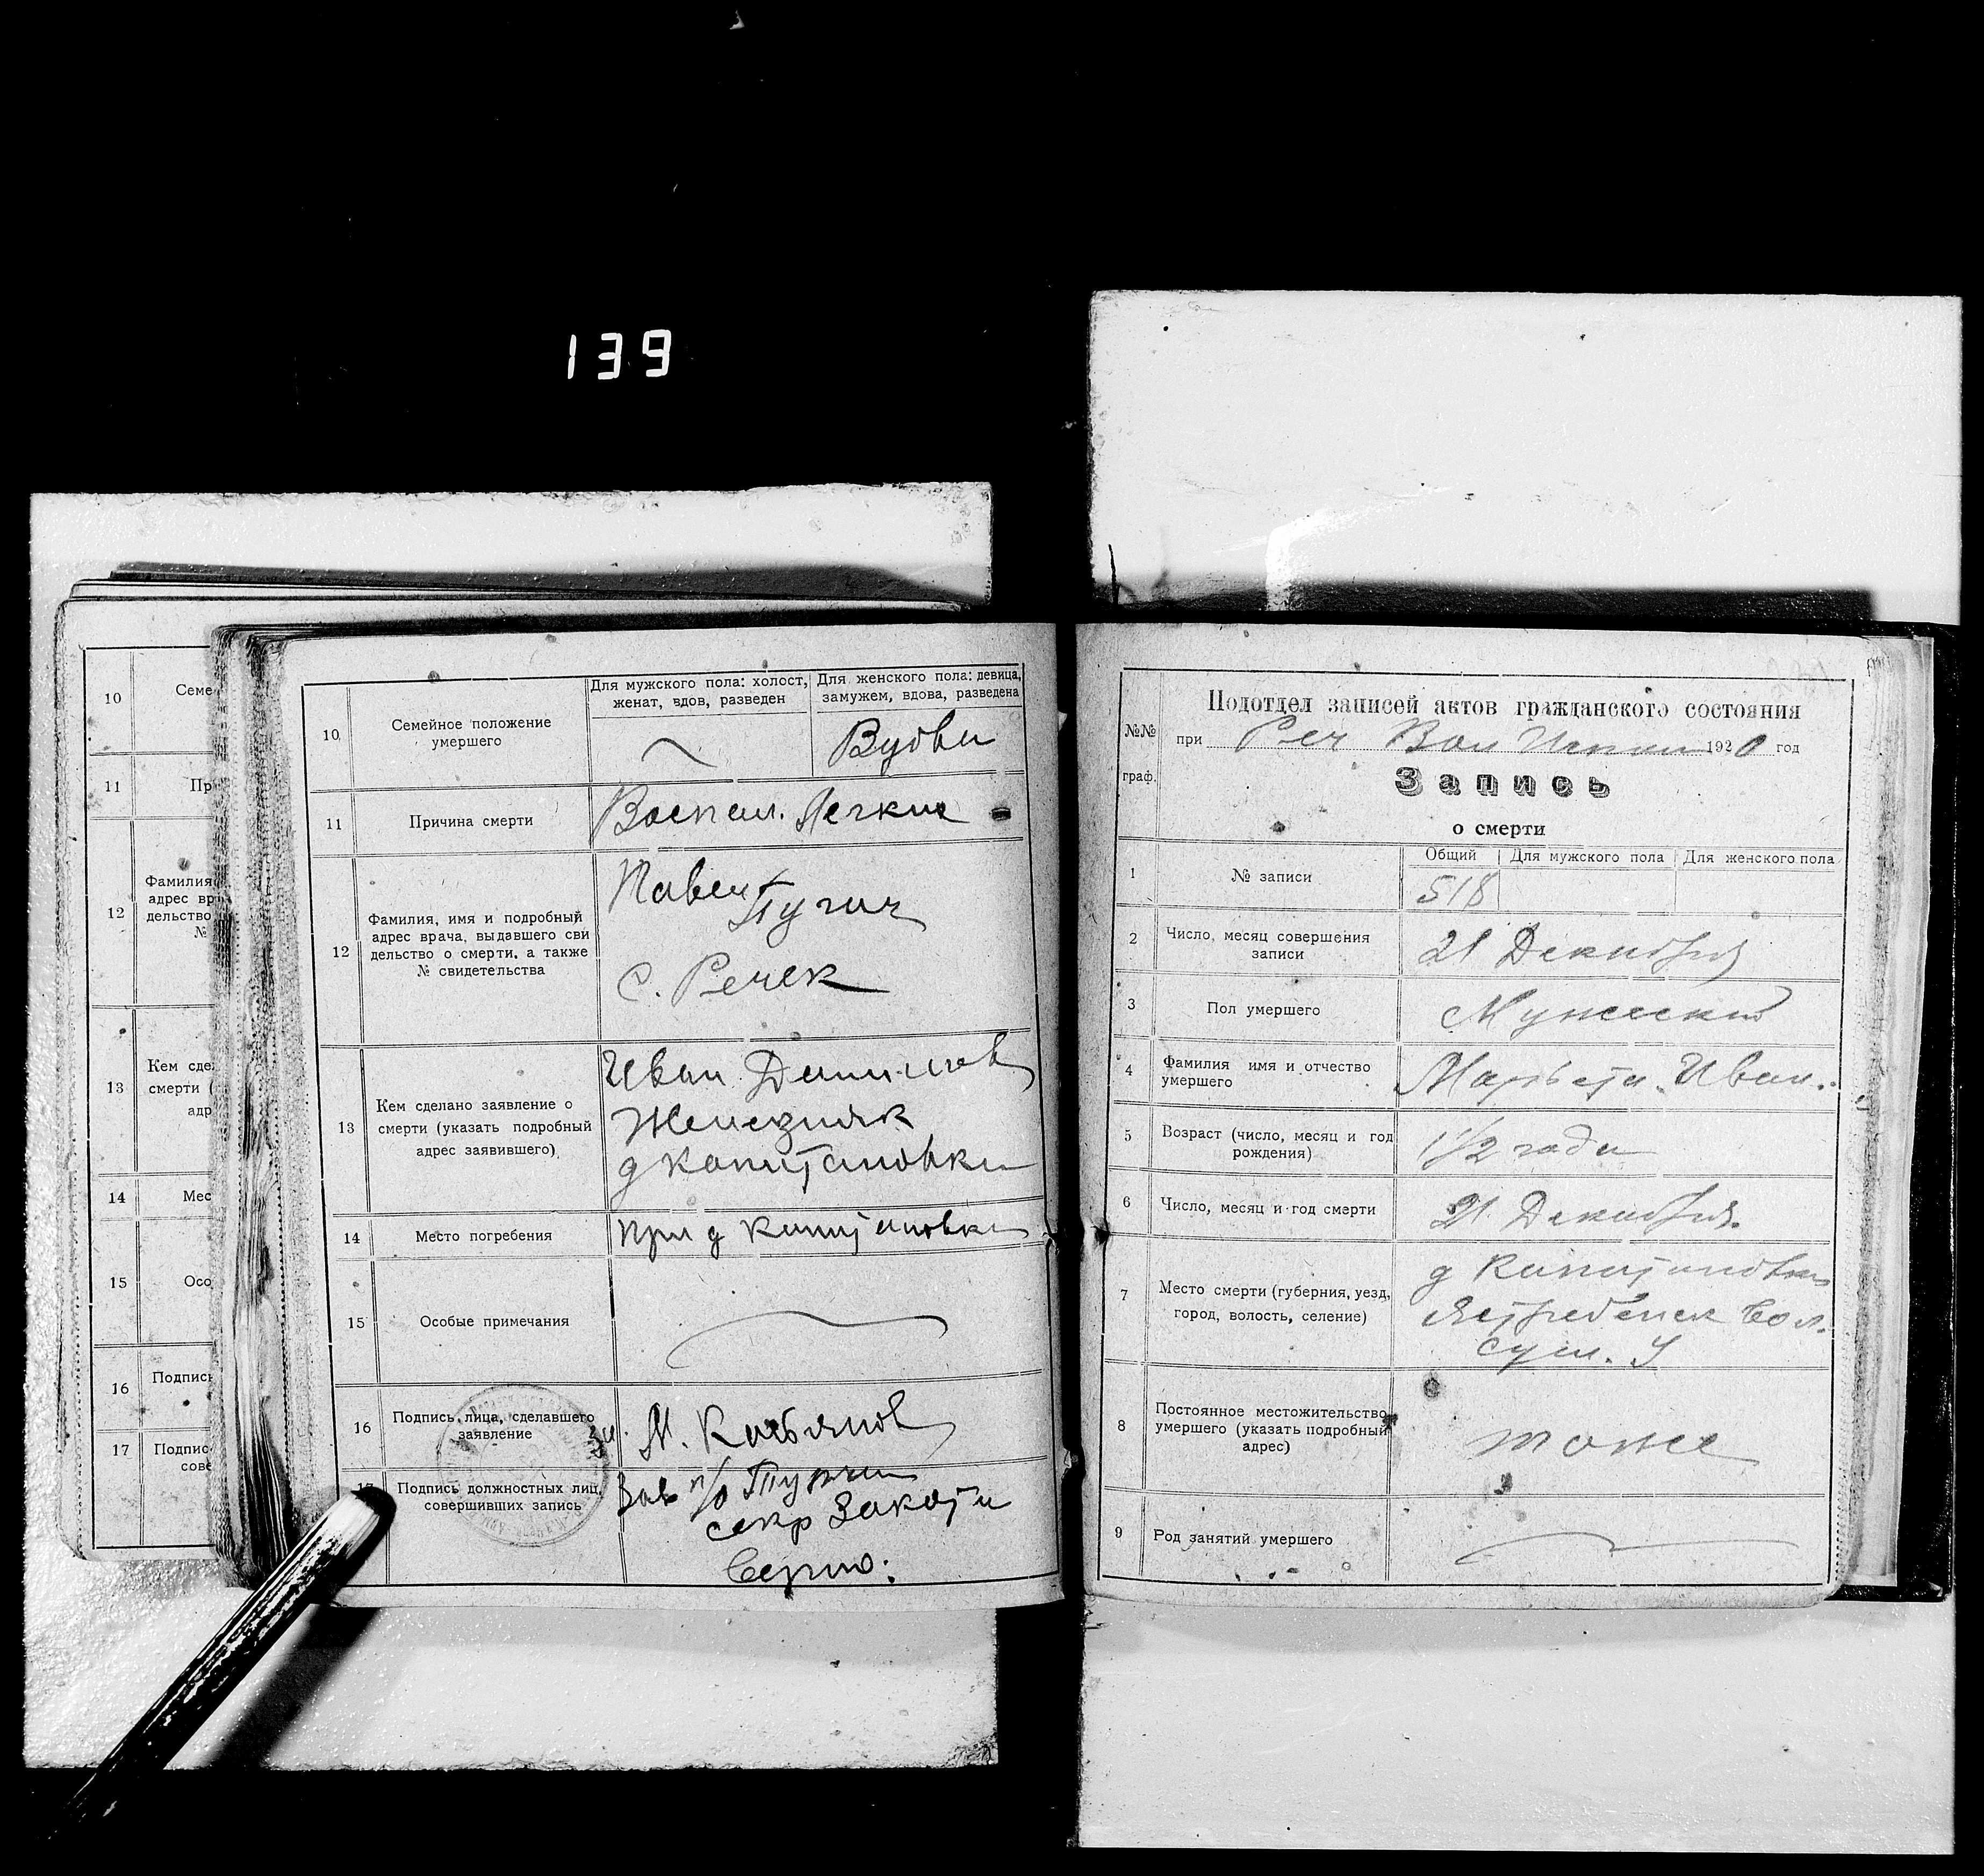 139
10
Семе
11
Пр
12
Фамилия
адрес вр
дельство
№
13
Кем сде
смерти (
адр
14
Мес
15
Осо
16
Подпись
17
Подпис
сове
10
Семейное положение
умершего
Для мужского пола: холост,
женат, вдов, разведен
Для женского пола: девица,
замужем, вдова, разведена
Вудва
11
Причина смерти
Воспал. Легких
12
Фамилия, имя и подробный
адрес врача, выдавшего сви
дельство о смерти, а также
№ свидетельства
Павел
с. Речек
13
Кем сделано заявление о
смерти (указать подробный
адрес заявившего)
Иван Данилов
Железняк
д Капитановка
14
Место погребения
при д Капитановка
15
Особые примечания
16
Подпись лица, сделавшего
заявление
за. М.
17
Подпись должностных лиц,
совершивших запись
Зав п/о
секр
Верно:
№№
граф.
Подотдел записей актов гражданского состояния
при Реч Вол Испол 1920 год
Запись
о смерти
1
№ записи
Общий
Для мужского пола
Для женского пола
518
2
Число, месяц совершения
записи
21 Декабря
3
Пол умершего
Мужеский
4
Фамилия имя и отчество
умершего
Иван.
5
Возраст (число, месяц и год
рождения)
1 1/2 года
6
Число, месяц и год смерти
21 Декабря.
7
Место смерти (губерния, уезд,
город, волость, селение)
д Капитановка
Ястребенск вол.
Сум. У
8
Постоянное местожительство
умершего (указать подробный
адрес)
тоже
9
Род занятий умершего